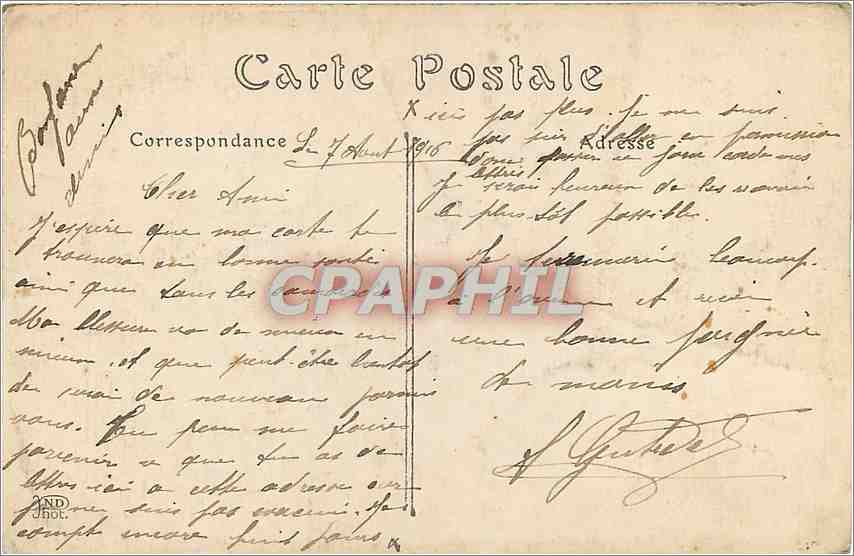 Carte Postale
Correspondance
Adresse
Le 7 Aout 1916
Cher Ami
J'espère que ma carte te
trouvera en bonne santé
ainsi que tous les camarades
Ma blessure va de mieux en
mieux. et que peut-être bientot
je serai de nouveau parmis
vous. Tu peux me faire
parvenir ce que tu as de
lettres ici a cette adresse car
je ne suis pas evacué. Je
compt encore huit jours x
x ici pas plus. Je ne suis
pas sur d'aller en permission
donc ce jour mes
lettres. Je serais heureux de les ravoir
le plus tôt possible.
Je te remercie beaucoup.
à l'avance et recoi
une bonne poignée
de mains
CPAPHIL
ND
Phot.